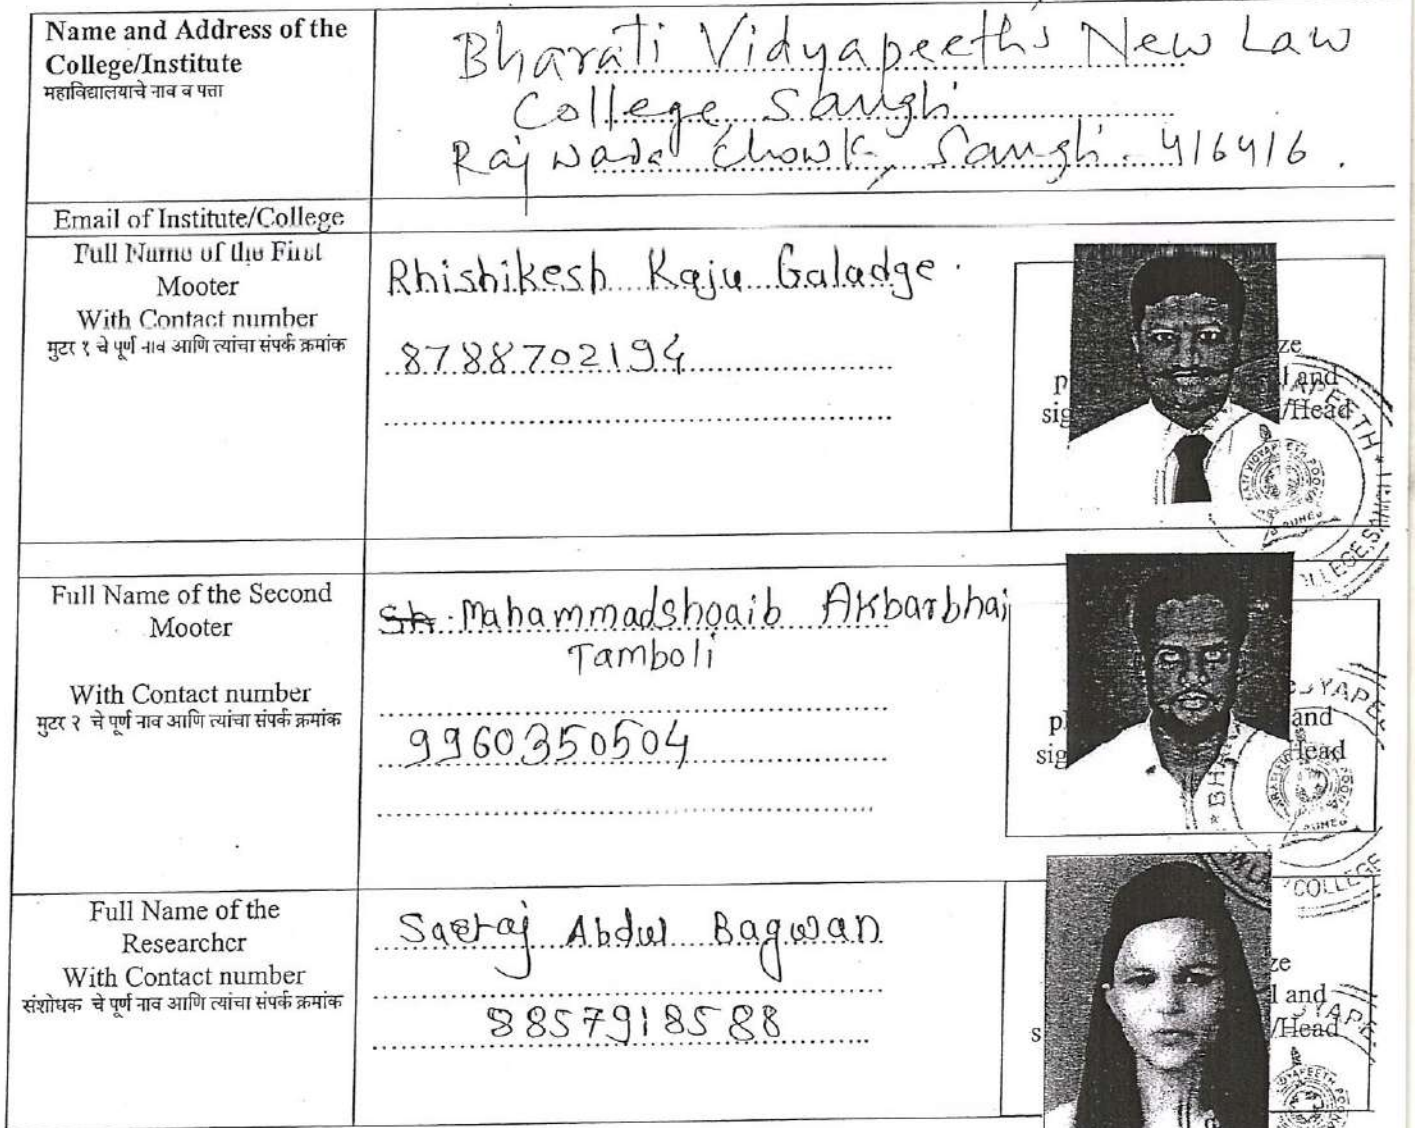 Name and Address of the
College/Institute
महाविद्यालयाचे नाव व पत्ता
Bharati Vidyapeeth's New Law
College, Sangli
Rajwada Chowk, Sangli. 416416.
Email of Institute/College
Full Name of the First
Mooter
With Contact number
मुटर १ चे पूर्ण नाव आणि त्यांचा संपर्क क्रमांक
Rhishikesh Raju Galadge.
8788702194
ze
l and
sig
/Head
Full Name of the Second
Mooter
With Contact number
मुटर २ चे पूर्ण नाव आणि त्यांचा संपर्क क्रमांक
Mahammadshoaib Akbarbhai
Tamboli
9960350504
and
sig
Head
Full Name of the
Researcher
With Contact number
संशोधक चे पूर्ण नाव आणि त्यांचा संपर्क क्रमांक
Sartaj Abdul Bagwan
8857918588
ze
l and
s
/Head